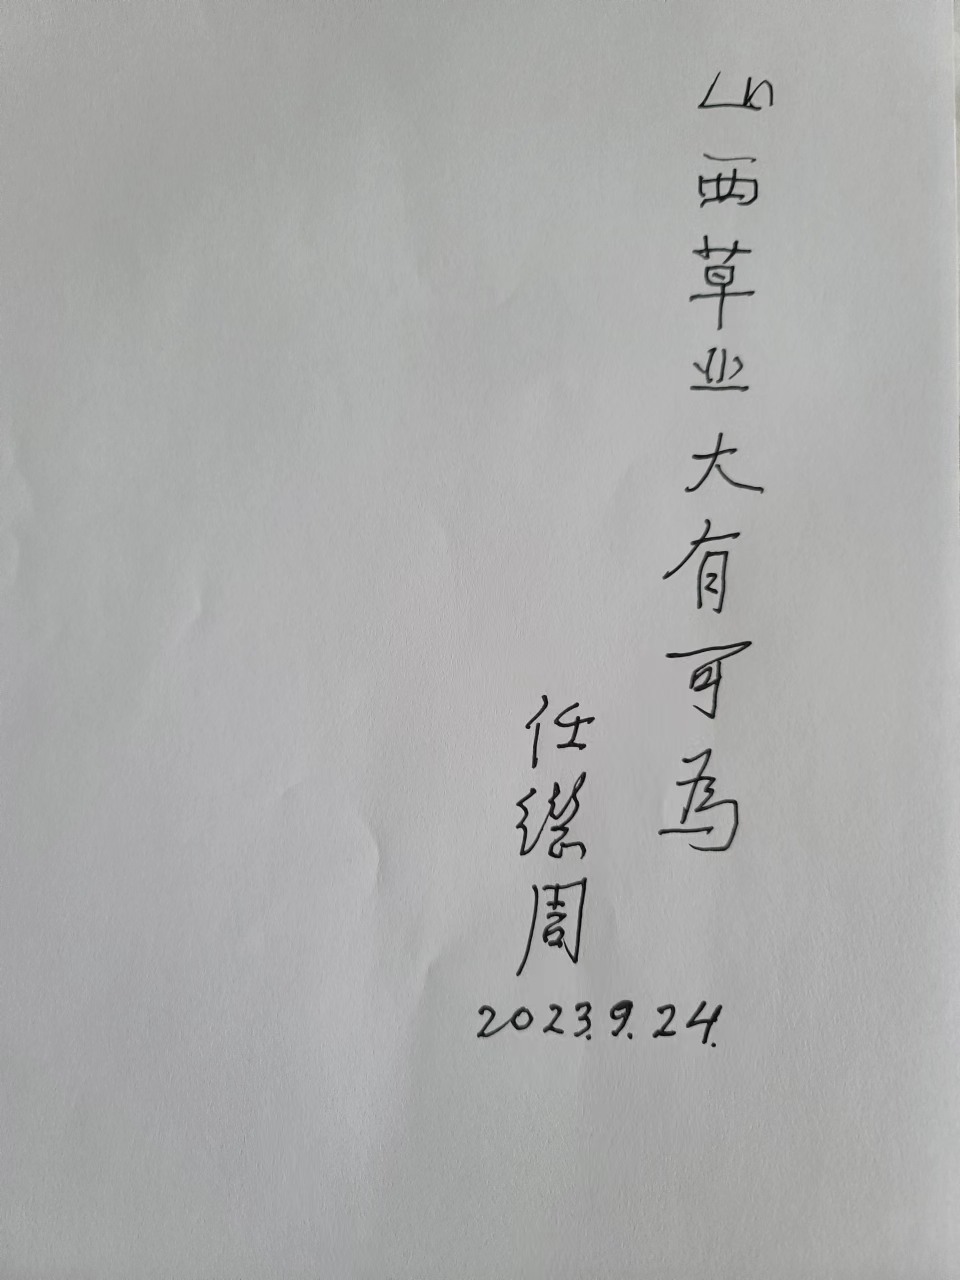 山西草业大有可為
任继周
2023.9.24.